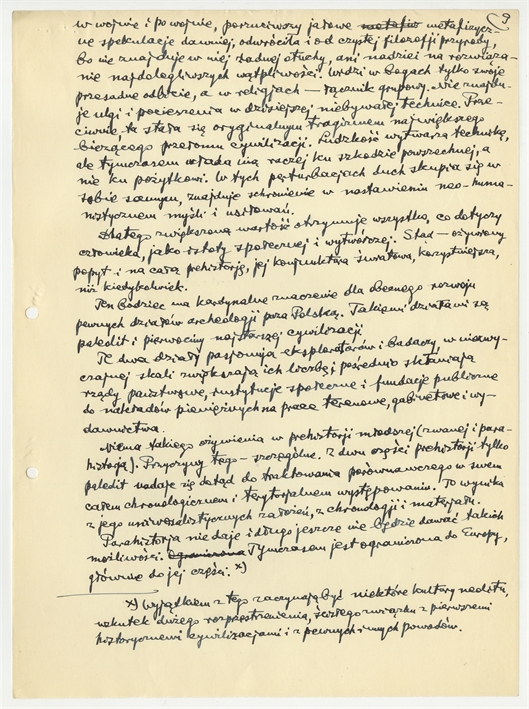 9
w wojnie i po wojnie, porzuciwszy jałowe metafizycz-
ne spekulacje dawniej, odwróciła i od czystej filozofji przyrody,
bo nie znajduje w niej żadnej otuchy, ani nadziei na rozwiąza-
nie najdolegliwszych wątpliwości. Widzi w bogach tylko swoje
przesadne odbicie, a w religjach — łącznik grupowy. Nie znajdu-
je ulgi i pocieszenia w dzisiejszej niebywałej technice. Prze-
ciwnie, ta stała się oryginalnym tragizmem największego
bieżącego przełomu cywilizacji. Ludzkość wytwarza technikę,
ale tymczasem włada nią raczej ku szkodzie powszechnej, a
nie ku pożytkowi. W tych perturbacjach duch skupia się w
sobie samym, znajduje schronienie w nastawieniu neo-huma-
nistycznem myśli i usiłowań.
Dlatego zwiększoną wartość otrzymuje wszystko, co dotyczy
człowieka, jako istoty społecznej i wytwórczej. Stąd — ożywiony
popyt i na całą prehistorję, jej konjunktura światowa, korzystniejsza,
niż kiedykolwiek.
Ten bodziec ma kardynalne znaczenie dla obecnego rozwoju
pewnych działów archeologji poza Polską. Takiemi działami są
paleolit i pierwociny najstarszej cywilizacji.
Te dwa działy pasjonują eksploratorów i badaczy, w niezwy-
czajnej skali zwiększają ich liczbę i pośrednio skłaniają
rządy państwowe, instytucje społeczne i fundacje publiczne
do nakładów pieniężnych na prace terenowe, gabinetowe i wy-
dawnictwa.
Niema takiego ożywienia w prehistorji młodszej (zwanej i para-
historją). Przyczyny tego — szczególne. Z dwu części prehistorji tylko
paleolit nadaje się dotąd do traktowania porównawczego w swem
całem chronologicznem i terytorjalnem występowaniu. To wynika
z jego uniwersalistycznych założeń, z chronologji i materjału.
Parahistorja nie daje i długo jeszcze nie będzie dawać takich
możliwości. Tymczasem jest ograniczona do Europy,
głównie do jej części. x)
x) Wyjątkiem z tego zaczynają być niektóre kultury neolitu,
wskutek dużego rozprzestrzenienia, ścisłego związku z pierwszemi
historycznemi cywilizacjami i z pewnych innych powodów.